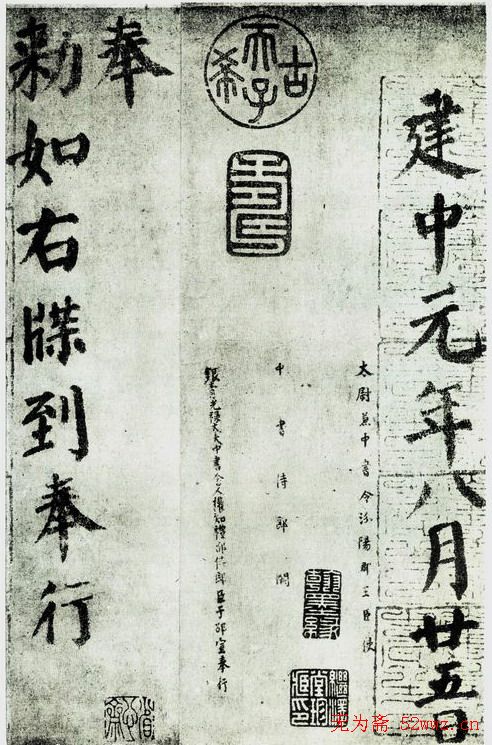 建中元年八月廿五日
太尉兼中書令汾陽郡王臣使
中書侍郎闕
銀青光祿大夫中書舍人權知禮部侍郎臣于邵宣奉行
奉
勑如右牒到奉行
古希天子
壽
无为斋 52wwz.cn